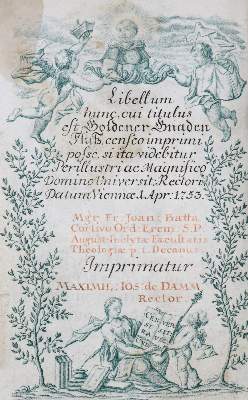 Libellum
hunc, cui titulus
est Goldener Gnaden
Fluß, censeo imprimi
posse, si ita videbitur
Perillustri ac Magnifico
Domino Universit: Rectori
Datum Viennae 1. Apr. 1733.
Mgr. Fr. Joan: Batta
Ord. Erem: S. P.
August: Inclytae Facultatis
Theologiae p. t. Decanus.
Imprimatur
MAXIMIL: IOS: de DAMM
Rector.